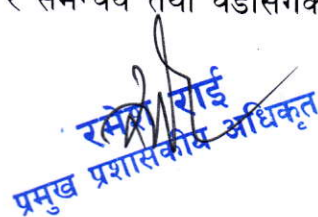 र समन्वय तथा वडासँगको
रमेश राई
प्रमुख प्रशासकीय अधिकृत